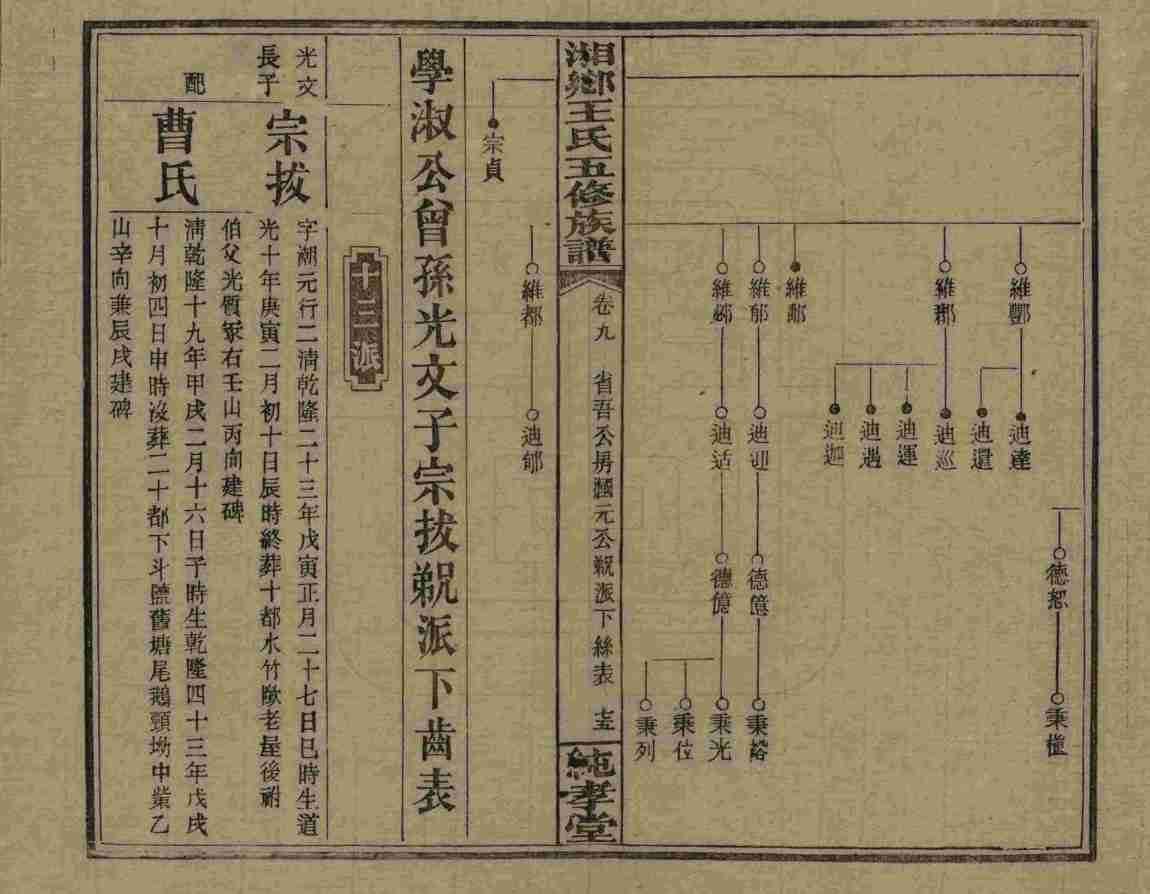 維酆
維郡
維鄅
維郁
維鄉
迪達
迪還
迪巡
迪運
迪遇
迪迦
迪迎
迪适
德恕
德億
秉權
秉裕
秉光
秉位
秉列
湘鄉王氏五修族譜
卷九
省吾公房 元公 派下絲表
純孝堂
維都
迪郇
宗貞
學淑公曾孫光文子宗拔 派下齒表
十三派
光文
長子
宗拔
字潮元行二清乾隆二十三年戊寅正月二十七日巳時生道
光十年庚寅二月初十日辰時終葬十都水竹 老屋後祔
伯父光質冢右壬山丙向建碑
配
曹氏
清乾隆十九年甲戌二月十六日子時生乾隆四十三年戊戌
十月初四日申時沒葬二十都下斗鹽舊塘尾鵝頸坳中業乙
山辛向兼辰戌建碑